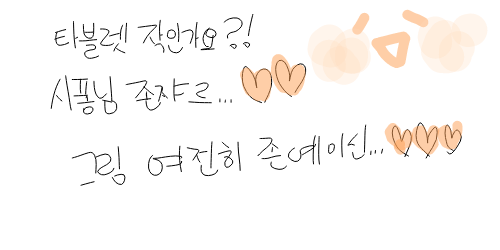 타블렛 작인가요?!
시퐁님 존쟈르...
그림 여전히 존예이신...